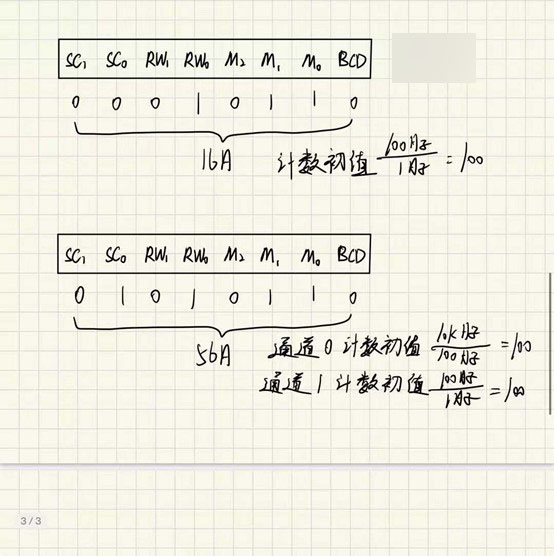 SC₁ SC₀ RW₁ RW₀ M₂ M₁ M₀ BCD
0 0 0 1 0 1 1 0
16A 计数初值 100Hz/1Hz = 100
SC₁ SC₀ RW₁ RW₀ M₂ M₁ M₀ BCD
0 1 0 1 0 1 1 0
56A 通道0计数初值 10KHz/100Hz = 100
通道1计数初值 100Hz/1Hz = 100
3 / 3